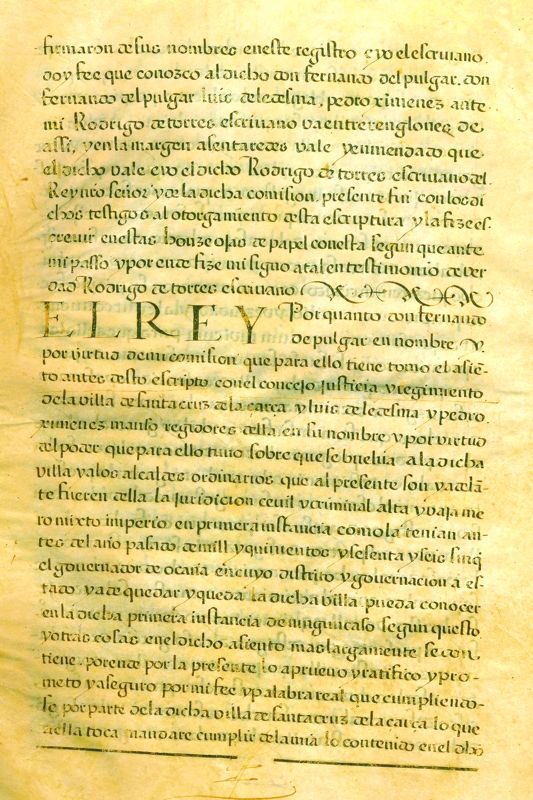 firmaron de sus nombres en este registro e yo el escriuano.
doy fee que conozco al dicho don fernando del pulgar. don
fernando del pulgar luis de ledesma, pedro ximenez ante.
mi Rodrigo de torres escriuano va entre renglones de
assi, y en la margen alentaredes vale y enmendado que
el dicho vale e yo el dicho Rodrigo de torres escriuano del
Rey nro señor y de la dicha comision, presente fui con los di
chos testigos al otorgamiento desta escriptura y la fize es
creuir en estas honze ojas de papel con esta segun que ante
mi passo y por ende fize mi signo a tal en testimonio de ver
dad Rodrigo de torres escriuano
EL REY Por quanto don fernando
de pulgar en nombre y.
por virtud de mi comision que para ello tiene tomo el asie~
to antes desto escripto con el concejo justicia y regimiento
de la villa de santa cruz de la carça y luis de ledesma y pedro.
ximenez manso regidores della en su nombre y por virtud
del poder que para ello tuuo sobre que se buelua a la dicha
villa y a los alcaldes ordinarios que al presente son y adela~
te fueren della la juridicion ceuil y criminal alta y baja me
ro mixto imperio en primera instancia como la tenian an-
tes del año pasado de mill y quinientos y sesenta y seis sin q
el gouernador de ocaña en cuyo distrito y gouernacion a es
tado y a de quedar y queda la dicha billa pueda conocer
en la dicha primera instancia de ningui caso segun questo
y otras cosas en el dicho asiento mas largamente se con
tiene. por ende por la presente lo aprueuo y ratifico y pro-
meto y aseguro por mi fee y palabra real que cumpliendo-
se por parte de la dicha villa de santa cruz de la carça lo que
a ella toca mandare cumplir de la mia lo contenido en el dho